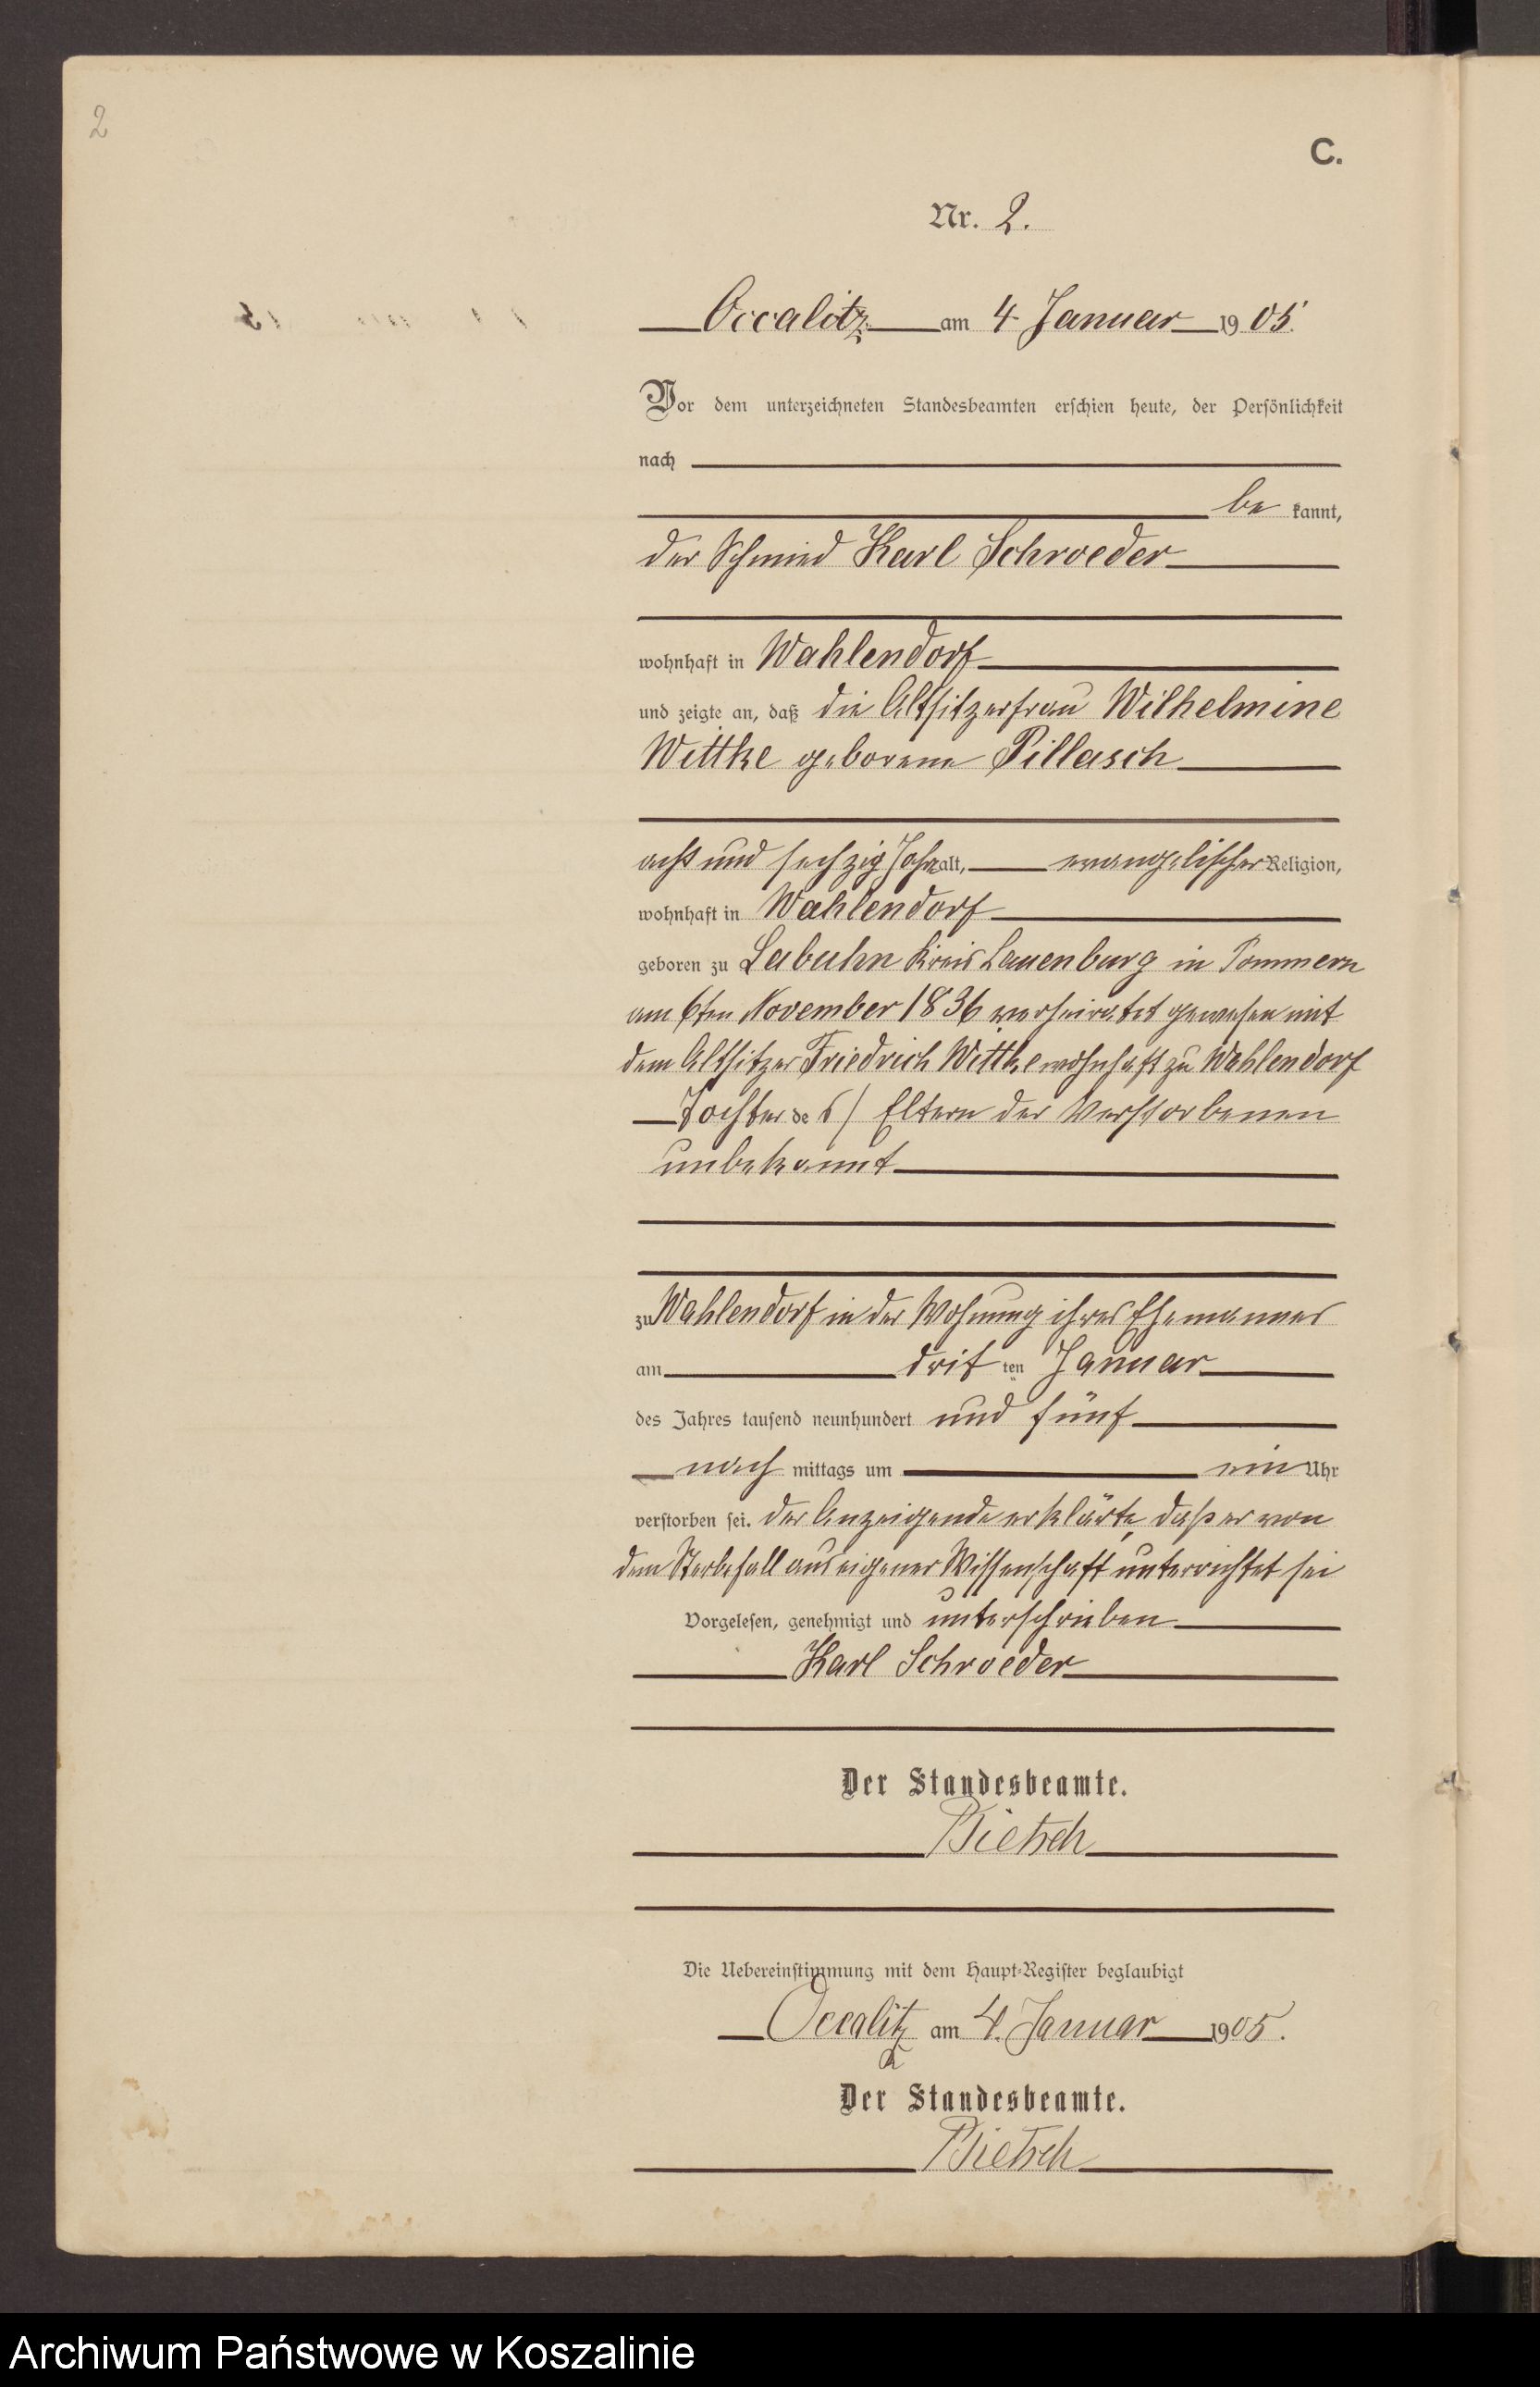 2
C.
Nr. 2.
Occalitz am 4. Januar 1905.
Vor dem unterzeichneten Standesbeamten erschien heute, der Persönlichkeit
nach
be kannt,
der Schmied Karl Schroeder
wohnhaft in Wahlendorf
und zeigte an, daß die Altsitzerfrau Wilhelmine
Wittke geborene Pillasch
acht und sechzig Jahre alt, evangelischer Religion,
wohnhaft in Wahlendorf
geboren zu Labuhn Kreis Lauenburg in Pommern
am 6ten November 1836 verheiratet gewesen mit
dem Altsitzer Friedrich Wittke wohnhaft zu Wahlendorf
Tochter de s / Eltern der Verstorbenen
unbekannt
zu Wahlendorf in der Wohnung ihres Ehemannes
am drit ten Januar
des Jahres tausend neunhundert und fünf
nach mittags um ein Uhr
verstorben sei. Der Anzeigende erklärte, daß er von
dem Sterbefall aus eigener Wissenschaft unterrichtet sei
Vorgelesen, genehmigt und unterschrieben
Karl Schroeder
Der Standesbeamte.
Bietsch
Die Uebereinstimmung mit dem Haupt-Register beglaubigt
Occalitz am 4. Januar 1905.
Der Standesbeamte.
Bietsch
Archiwum Państwowe w Koszalinie